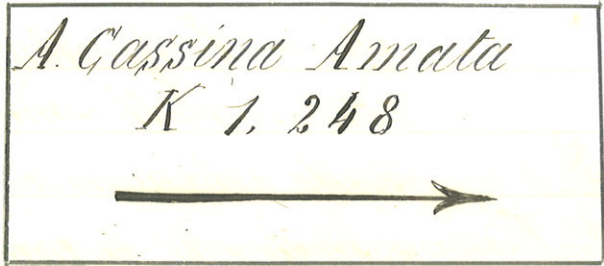 A. Cassina Amata
K 1, 248